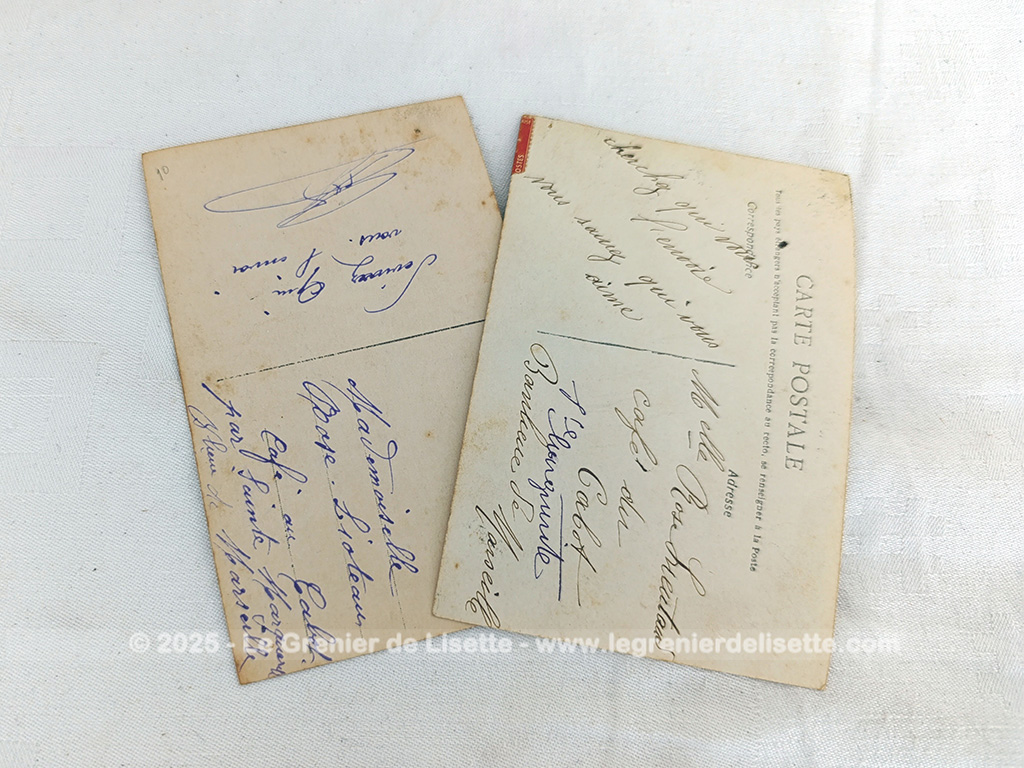 10
Devinez
Qui
vous
l'envoi
Mademoiselle
Rose Lioteau
Café au Cabot
par Sainte Marguerite
Marseille
POSTES
CARTE POSTALE
Tous les pays étrangers n'acceptant pas la correspondance au recto, se renseigner à la Poste
Correspondance
Adresse
cherchez qui vous
l'envoie
vous saurez qui vous
aime
Melle Rose Lieutaud
café du
Cabot
Ste Marguerite
Banlieue de Marseille
© 2025 - Le Grenier de Lisette - www.legrenierdelisette.com